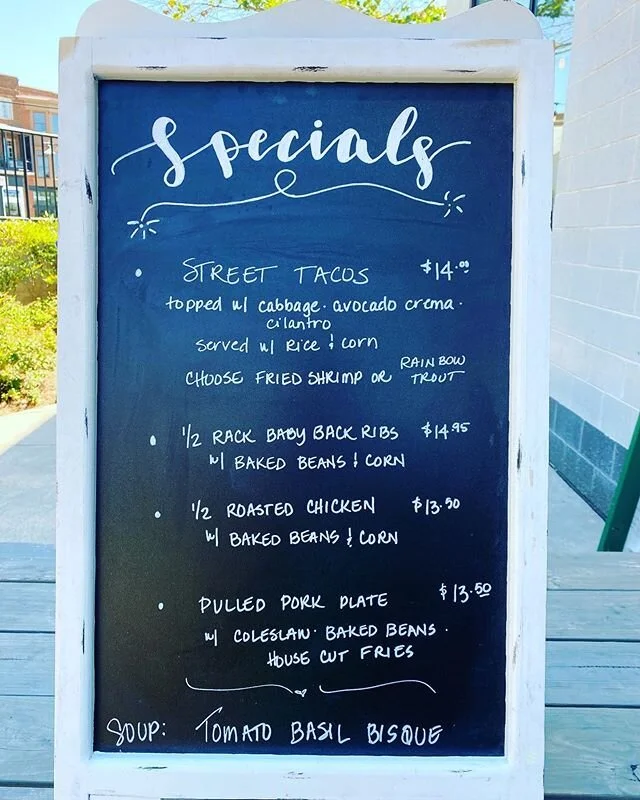 Specials
• STREET TACOS $14.00
topped w/ cabbage · avocado crema ·
cilantro
served w/ Rice & corn
CHOOSE FRIED SHRIMP OR RAINBOW TROUT
• 1/2 RACK BABY BACK RIBS $14.95
w/ BAKED BEANS & CORN
• 1/2 ROASTED CHICKEN $13.50
w/ BAKED BEANS & CORN
• PULLED PORK PLATE $13.50
w/ COLESLAW · BAKED BEANS ·
HOUSE CUT FRIES
SOUP: TOMATO BASIL BISQUE